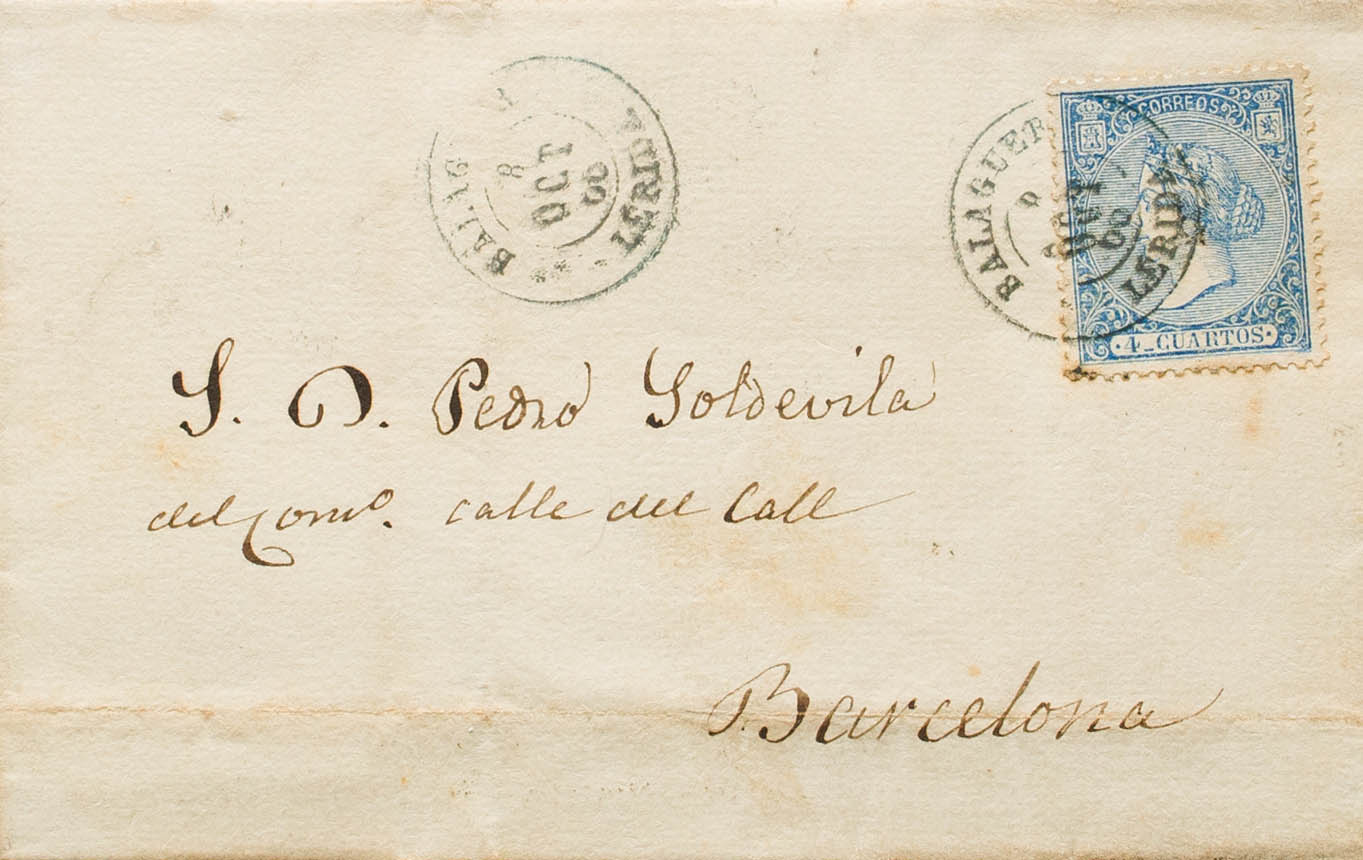 BALAG
8
OCT
66
LERIDA
BALAGUER
OCT
66
LERIDA
CORREOS
4_CUARTOS
S. D. Pedro Soldevila
del Comº. calle del Call
Barcelona